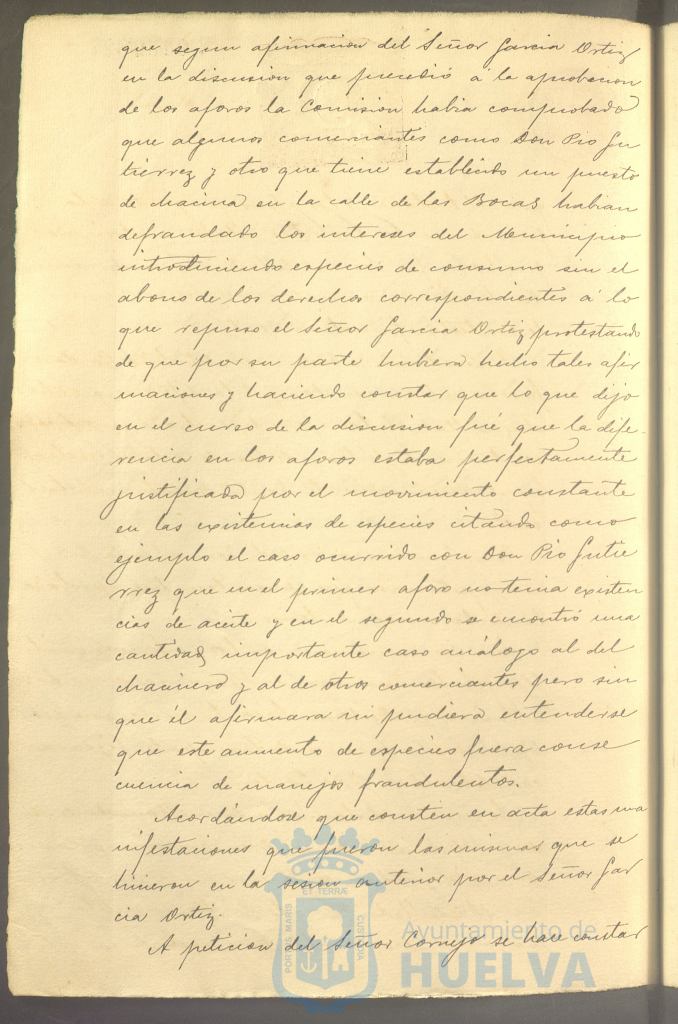 que segun afirmacion del Señor Garcia Ortiz
en la discusion que precedió á la aprobacion
de los aforos la Comision habia comprobado
que algunos comerciantes como Don Pio Gu
tierrez y otro que tiene establecido un puesto
de chacina en la calle de las Bocas habian
defraudado los intereses del Municipio
introduciendo especies de consumo sin el
abono de los derechos correspondientes á lo
que repuso el Señor Garcia Ortiz protestando
de que por su parte hubiera hecho tales afir
maciones y haciendo constar que lo que dijo
en el curso de la discusion fué que la dife-
rencia en los aforos estaba perfectamente
justificada por el movimiento constante
en las existencias de especies citando como
ejemplo el caso ocurrido con Don Pio Gutie
rrez que en el primer aforo no tenia existen
cias de aceite y en el segundo se encontró una
cantidad importante caso análogo al del
chacinero y al de otros comerciantes pero sin
que él afirmara ni pudiera entenderse
que este aumento de especies fuera conse
cuencia de manejos fraudulentos.
Acordándose que consten en acta estas ma
nifestaciones que fueron las mismas que se
hicieron en la sesion anterior por el Señor Gar
cia Ortiz.
A peticion del Señor Cornejo se hace constar
PORTUS MARIS ET TERRÆ CUSTODIA
Ayuntamiento de
HUELVA